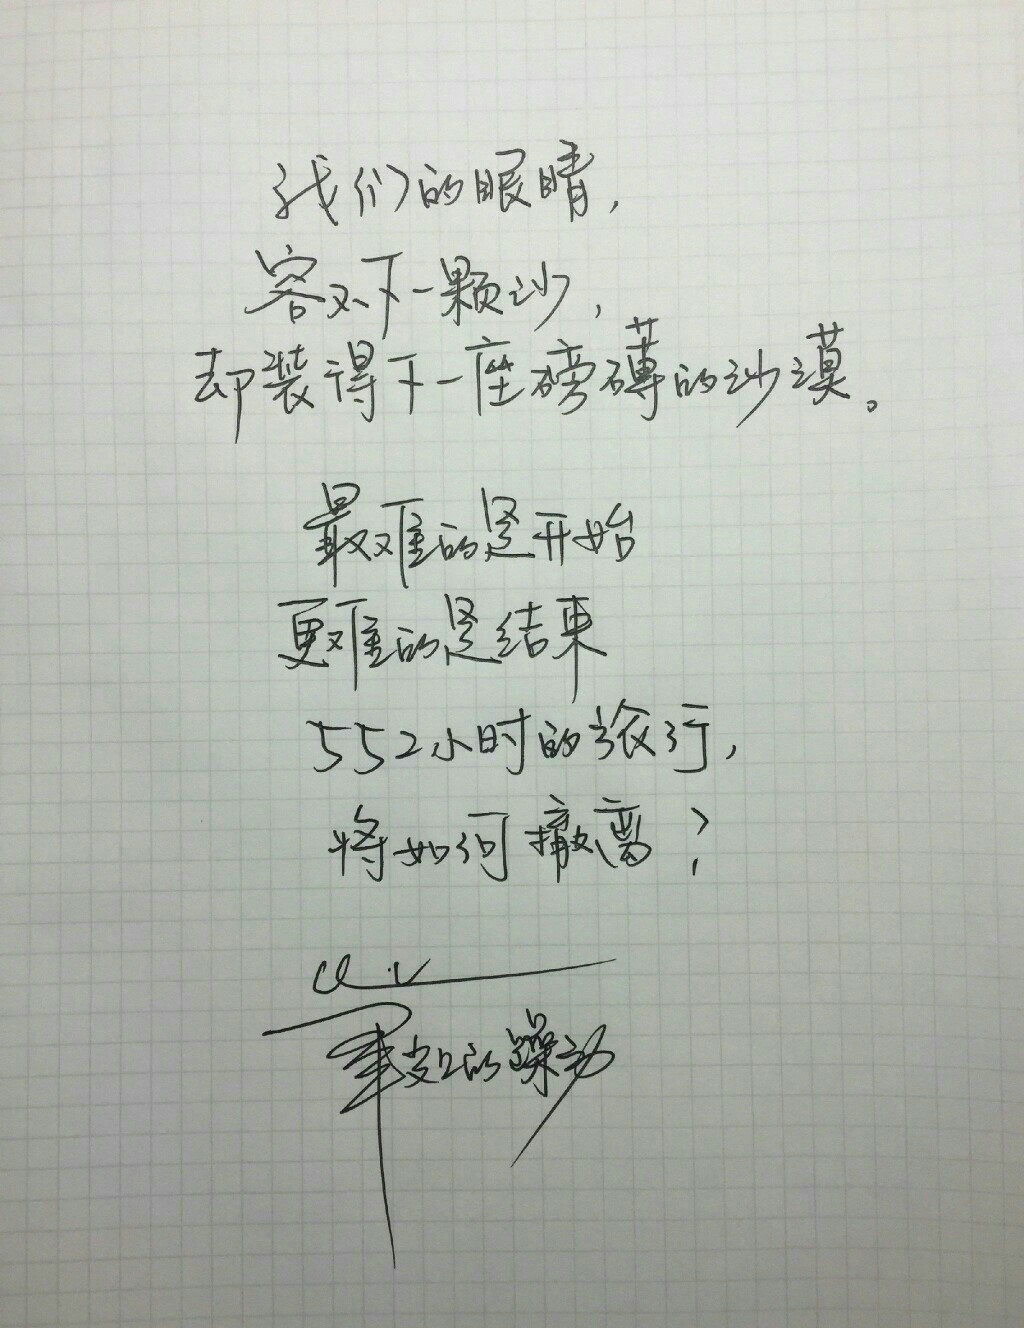 我们的眼睛，
容不下一颗沙，
却装得下一座磅礴的沙漠。
最难的是开始
更难的是结束
552小时的旅行，
将如何撤离？
的躁动